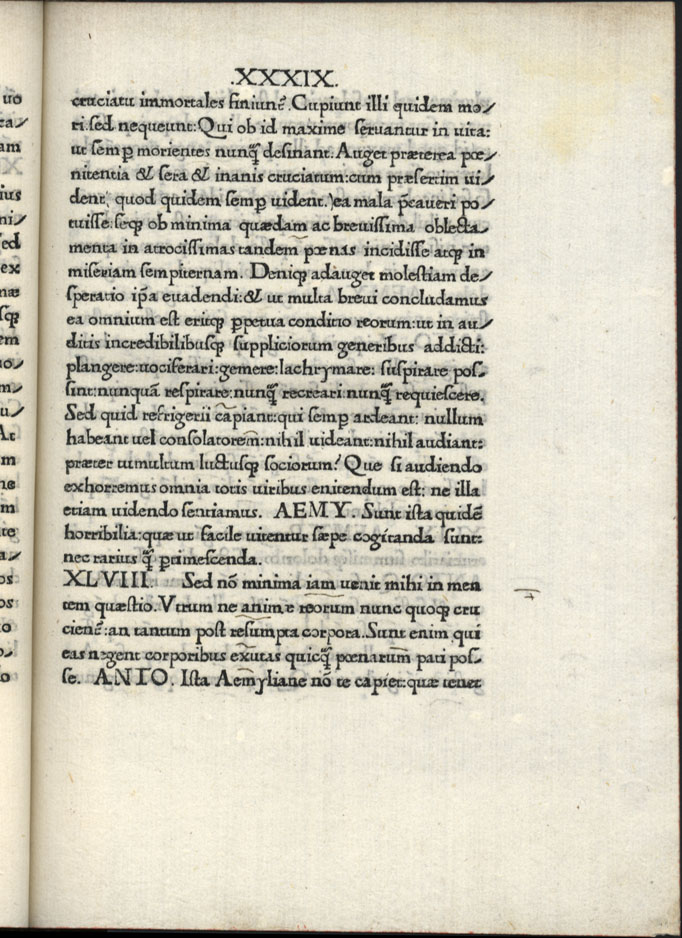 uo
.XXXIX.
cruciatu immortales finiunt̃. Cupiunt illi quidem mo/
ri. sed nequeunt: Qui ob id maxime seruantur in uita:
ut semꝑ morientes nunq̃ desinant. Auget præterea pœ/
nitentia & sera & inanis cruciatum: cum præsertim ui/
dent, quod quidem semꝑ uident, ea mala p̃caueri po
tuisse: seqꝫ ob minima quædam ac breuissima oblecta
menta in atrocissimas tandem pœnas incidisse atqꝫ in
miseriam sempiternam. Deniqꝫ adauget molestiam de/
speratio ip̃a euadendi: & ut multa breui concludamus
ea omnium est eritqꝫ ꝑpetua conditio reorum: ut in au/
ditis incredibilibusqꝫ suppliciorum generibus addicti:
plangere: uociferari: gemere: lachrymare: suspirare pos/
sint: nunquã respirare: nunq̃ recreari: nunq̃ requiescere.
Sed quid refrigerii capiant: qui semꝑ ardeant: nullum
habeant uel consolatorem: nihil uideant: nihil audiant:
præter tumultum luctusqꝫ sociorum? Que si audiendo
exhorremus omnia totis uiribus enitendum est: ne illa
etiam uidendo sentiamus. AEMY. Sunt ista quidẽ
horribilia: quæ ut facile uitentur sæpe cogitanda sunt:
nec rarius q̃ ꝑtimescenda.
XLVIII. Sed nõ minima iam uenit mihi in men
tem quæstio. Vtrum ne animæ reorum nunc quoqꝫ cru
cient̃: an tantum post resumpta corpora. Sunt enim qui
eas negent corporibus exutas quicq̃ pœnarum pati pos/
se. ANTO. Ista Aemyliane nõ te capiet: quæ tenet